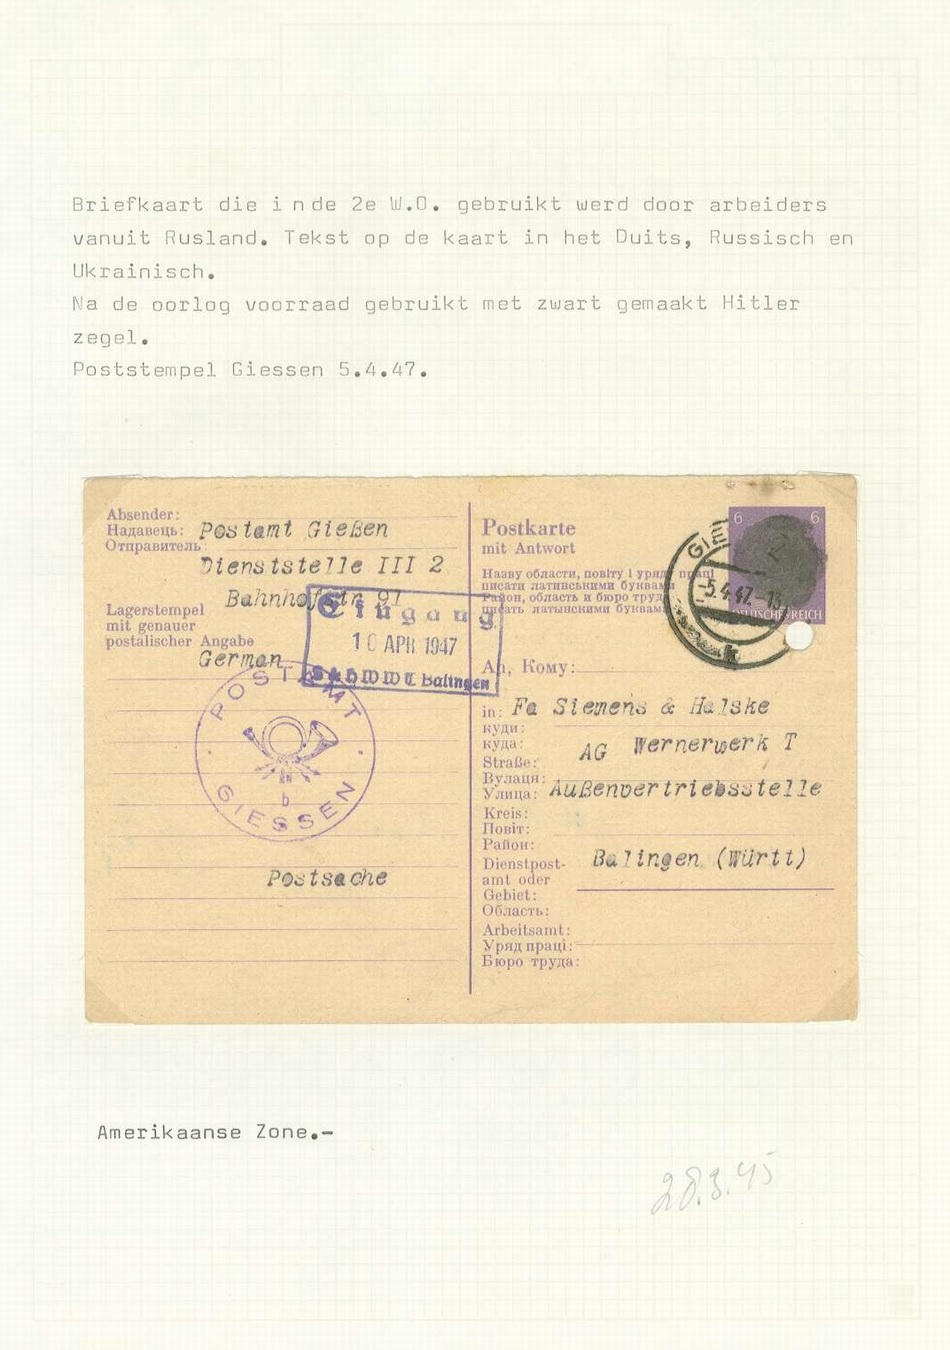 Briefkaart die in de 2e W.O. gebruikt werd door arbeiders
vanuit Rusland. Tekst op de kaart in het Duits, Russisch en
Ukrainisch.
Na de oorlog voorraad gebruikt met zwart gemaakt Hitler
zegel.
Poststempel Giessen 5.4.47.
Absender:
Надавець:
Отправитель:
Postamt Gießen
Dienststelle III 2
Bahnhofstr 91
Lagerstempel
mit genauer
postalischer Angabe
German
Eingang
10 APR 1947
Balingen
POSTAMT
b
GIESSEN
Postsache
Postkarte
mit Antwort
Назву области, повіту і уряду праці
писати латинськими буквами
Район, область и бюро труда
писать латынскими буквами
6 6
DEUTSCHES REICH
GIE
-5.4.47.-
k
An, Кому:
in: Fa Siemens & Halske
куди:
куда:
AG Wernerwerk T
Straße:
Вулаця:
Улица: Außenvertriebsstelle
Kreis:
Повіт:
Район:
Balingen (Württ)
Dienstpost-
amt oder
Gebiet:
Область:
Arbeitsamt:
Уряд праці:
Бюро труда:
Amerikaanse Zone.-
28.3.45